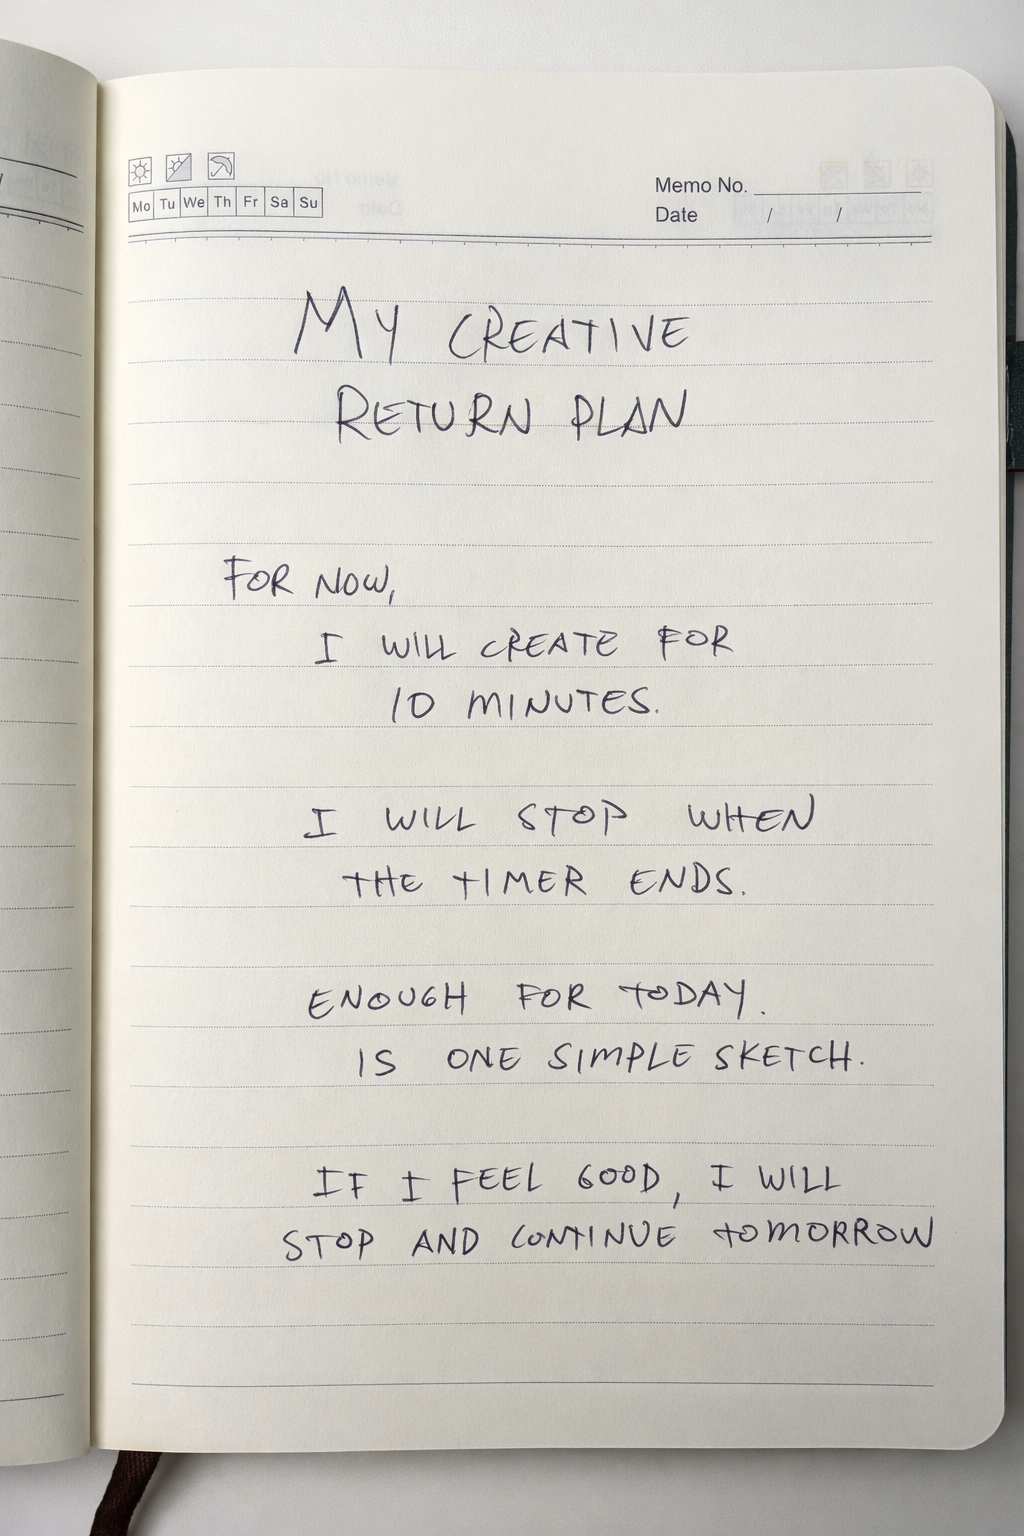 Mo Tu We Th Fr Sa Su
Memo No.
Date / /
MY CREATIVE
RETURN PLAN
FOR NOW,
I WILL CREATE FOR
10 MINUTES.
I WILL STOP WHEN
THE TIMER ENDS.
ENOUGH FOR TODAY.
IS ONE SIMPLE SKETCH.
IF I FEEL GOOD, I WILL
STOP AND CONTINUE TOMORROW